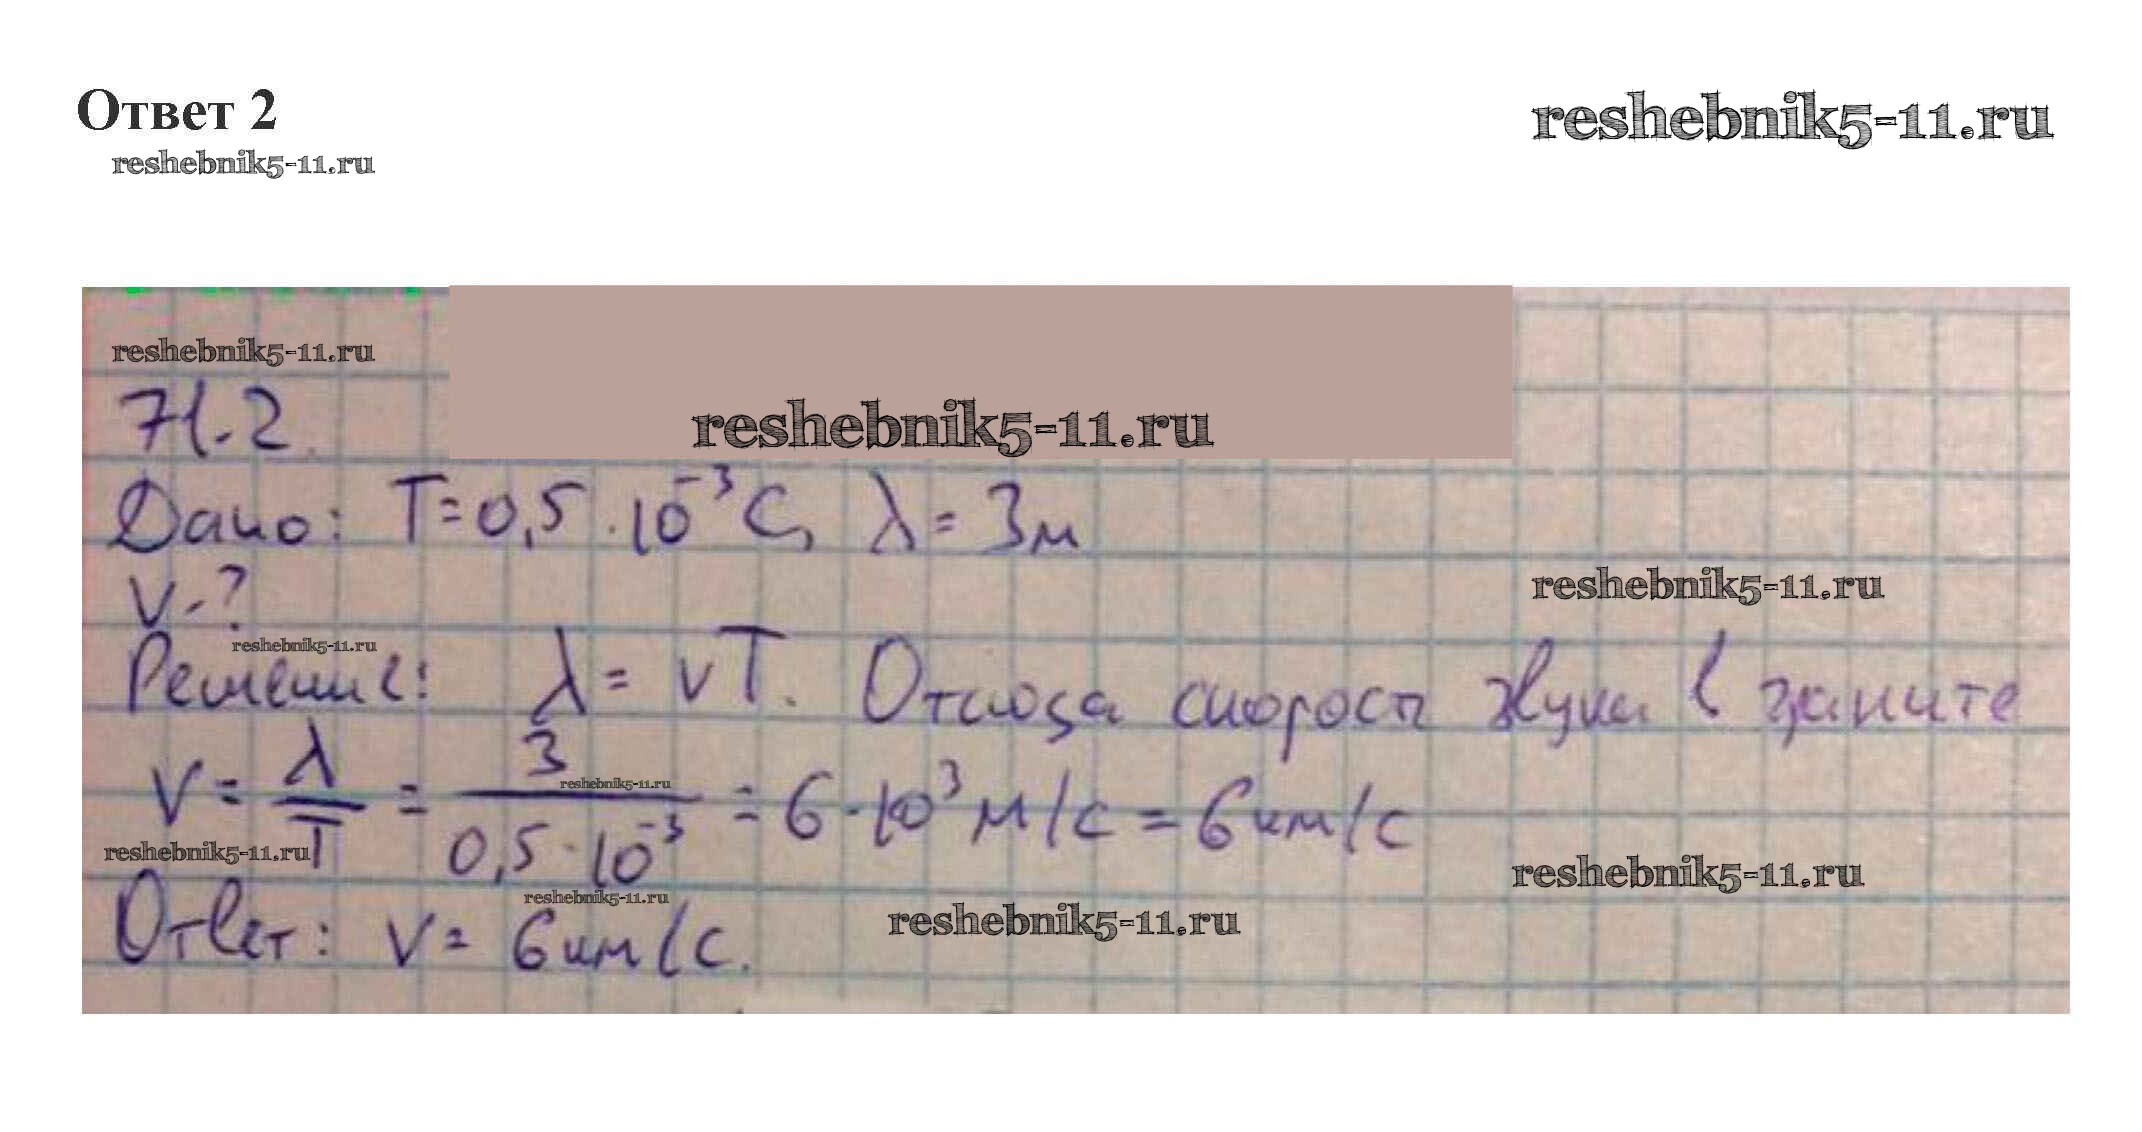 Ответ 2
reshebnik5-11.ru
reshebnik5-11.ru
reshebnik5-11.ru
71.2
reshebnik5-11.ru
Дано: T=0,5·10⁻³ С, λ = 3м
V-?
reshebnik5-11.ru
reshebnik5-11.ru
Решение: λ = vT. Отсюда скорость звука в граните
V = λ/T = 3/(0,5·10⁻³) = 6·10³ м/с = 6 км/с
reshebnik5-11.ru
reshebnik5-11.ru
reshebnik5-11.ru
reshebnik5-11.ru
reshebnik5-11.ru
Ответ: V= 6 км/с.